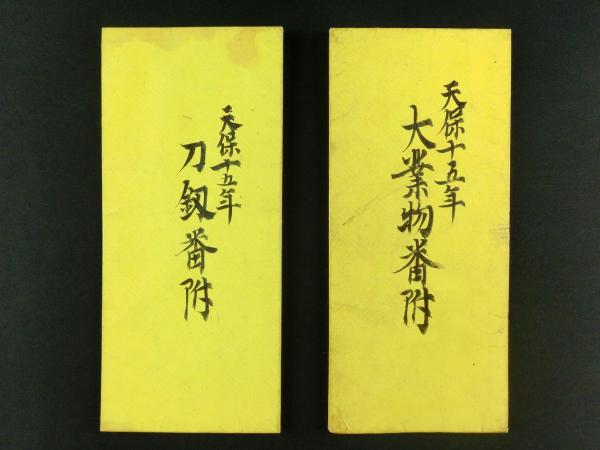 天保十五年
大業物番附
天保十五年
刀釼番附